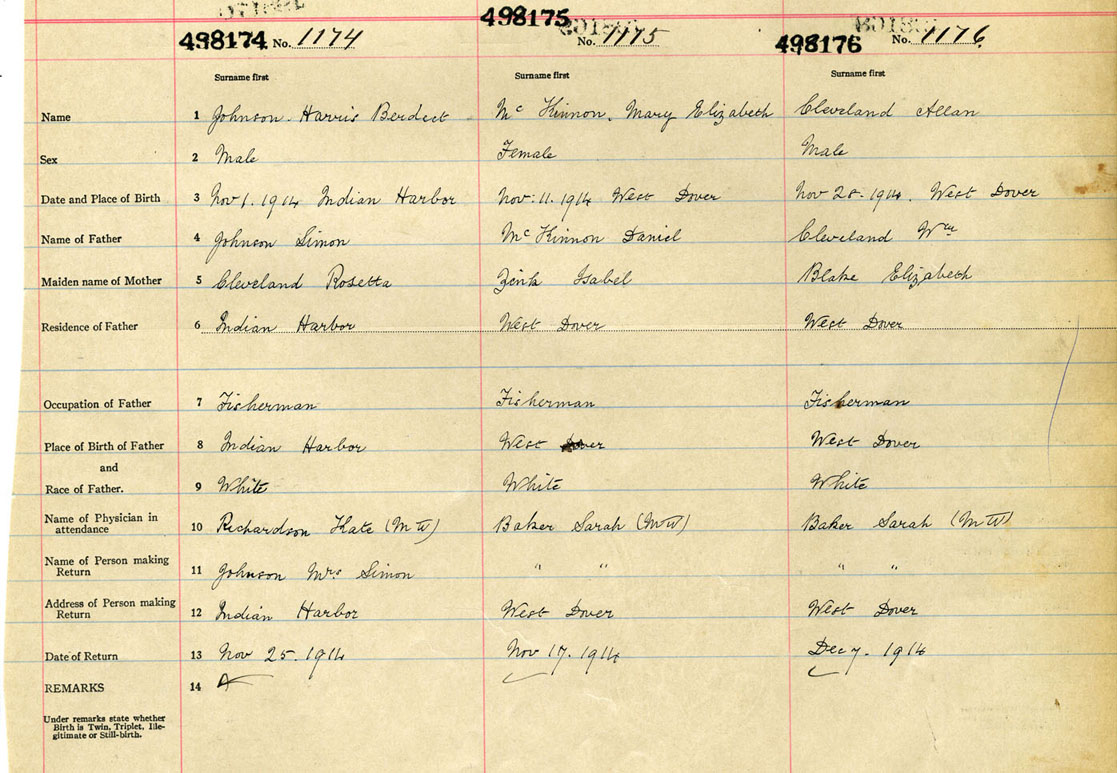 498174 No. 1174 498175 No. 1175 498176 No. 1176
Surname first Surname first Surname first
Name 1 Johnson. Harris Berdect Mc Kinnon, Mary Elizabeth Cleveland Allan
Sex 2 Male Female Male
Date and Place of Birth 3 Nov 1. 1914 Indian Harbor Nov. 11. 1914 West Dover Nov 28. 1914. West Dover
Name of Father 4 Johnson Simon Mc Kinnon Daniel Cleveland Wm
Maiden name of Mother 5 Cleveland Rosetta Zink Isabel Blake Elizabeth
Residence of Father 6 Indian Harbor West Dover West Dover
Occupation of Father 7 Fisherman Fisherman Fisherman
Place of Birth of Father 8 Indian Harbor West Dover West Dover
and
Race of Father. 9 White White White
Name of Physician in
attendance 10 Richardson Kate (MW) Baker Sarah (MW) Baker Sarah (MW)
Name of Person making
Return 11 Johnson Mrs Simon " " " "
Address of Person making
Return 12 Indian Harbor West Dover West Dover
Date of Return 13 Nov 25. 1914 Nov 17. 1914 Dec 7. 1914
REMARKS 14
Under remarks state whether
Birth is Twin, Triplet, Ille-
gitimate or Still-birth.